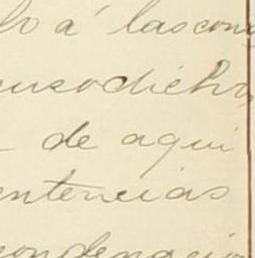 ho á las con
cuso dicho
de aqui
entencias
condenacio